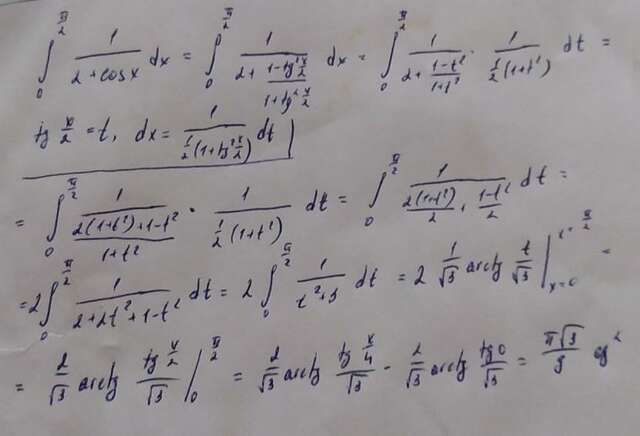 ∫₀^{π/2} 1/(2+cosx) dx = ∫₀^{π/2} 1/(2+(1-tg²x/2)/(1+tg²x/2)) dx = ∫₀^{π/2} 1/(2+(1-t²)/(1+t²)) · 1/(½(1+t²)) dt =
tg x/2 = t, dx = 1/(½(1+tg²x/2)) dt
= ∫₀^{π/2} 1/((2(1+t²)+1-t²)/(1+t²)) · 1/(½(1+t²)) dt = ∫₀^{π/2} 1/(2(1+t²)/2 + (1-t²)/2) dt =
= 2∫₀^{π/2} 1/(2+2t²+1-t²) dt = 2∫₀^{π/2} 1/(t²+3) dt = 2 1/√3 arctg t/√3 |_{x=0}^{x=π/2} =
= 2/√3 arctg (tg x/2)/√3 |₀^{π/2} = 2/√3 arctg (tg π/4)/√3 - 2/√3 arctg (tg 0)/√3 = π√3/9